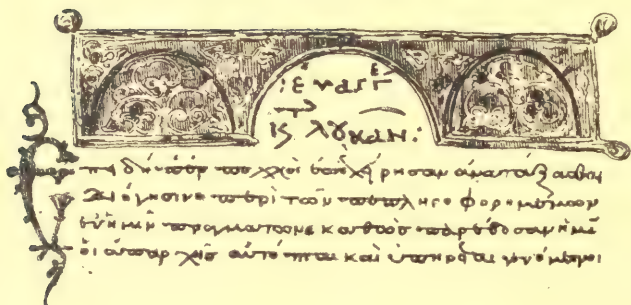 :ἐυαγγέ
κτ λουκᾶν:
Ἐπειδήπερ πολλοὶ ἐπεχείρησαν ἀνατάξασθαι
διήγησιν περὶ τῶν πεπληροφορημένων
ἐν ἡμῖν πραγμάτων καθὼς παρέδοσαν ἡμῖ
οἱ ἀπαρχῆς αὐτόπται καὶ ὑπηρέται γενόμενοι